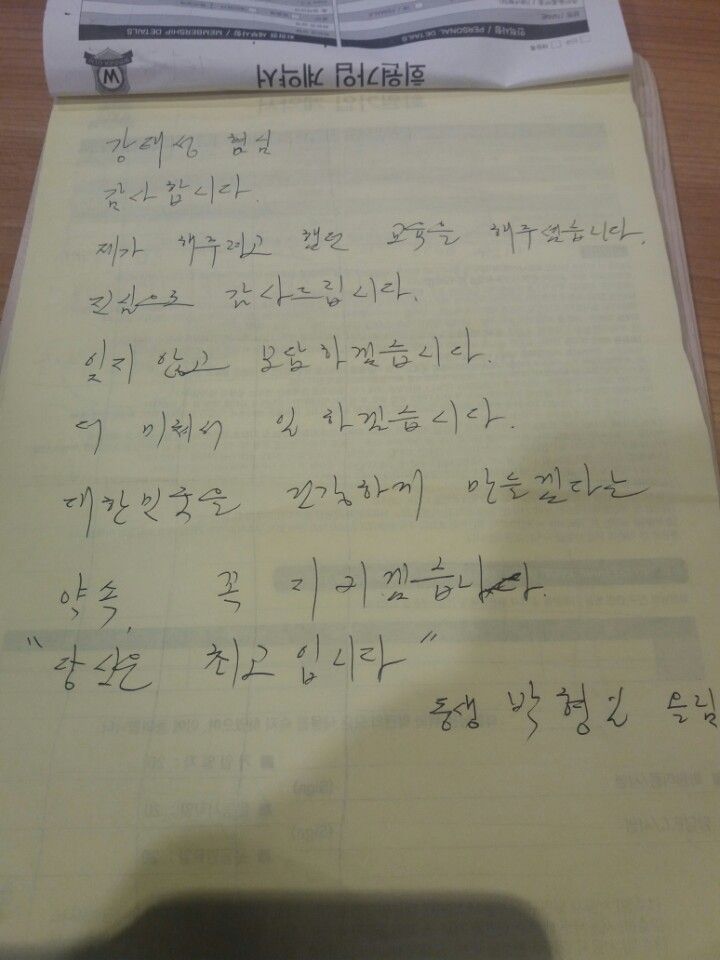 인적사항 / PERSONAL DETAILS
회원 세부사항 / MEMBERSHIP DETAILS
W
회원가입 계약서
강태성 형님
감사합니다.
제가 해주려고 했던 교육을 해주셨습니다.
진심으로 감사드립니다.
잊지 않고 보답하겠습니다.
더 미쳐서 일 하겠습니다.
대한민국을 건강하게 만들겠다는
약속, 꼭 지키겠습니다.
"당신은 최고입니다"
동생 박형일 올림